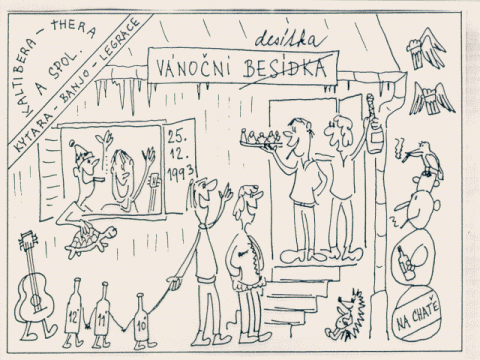 KALTIBERA - THERA
A SPOL.
KYTARA - BANJO - LEGRACE
desítka
VÁNOČNÍ BESÍDKA
25.
12.
1993!
12
11
10
NA CHATĚ